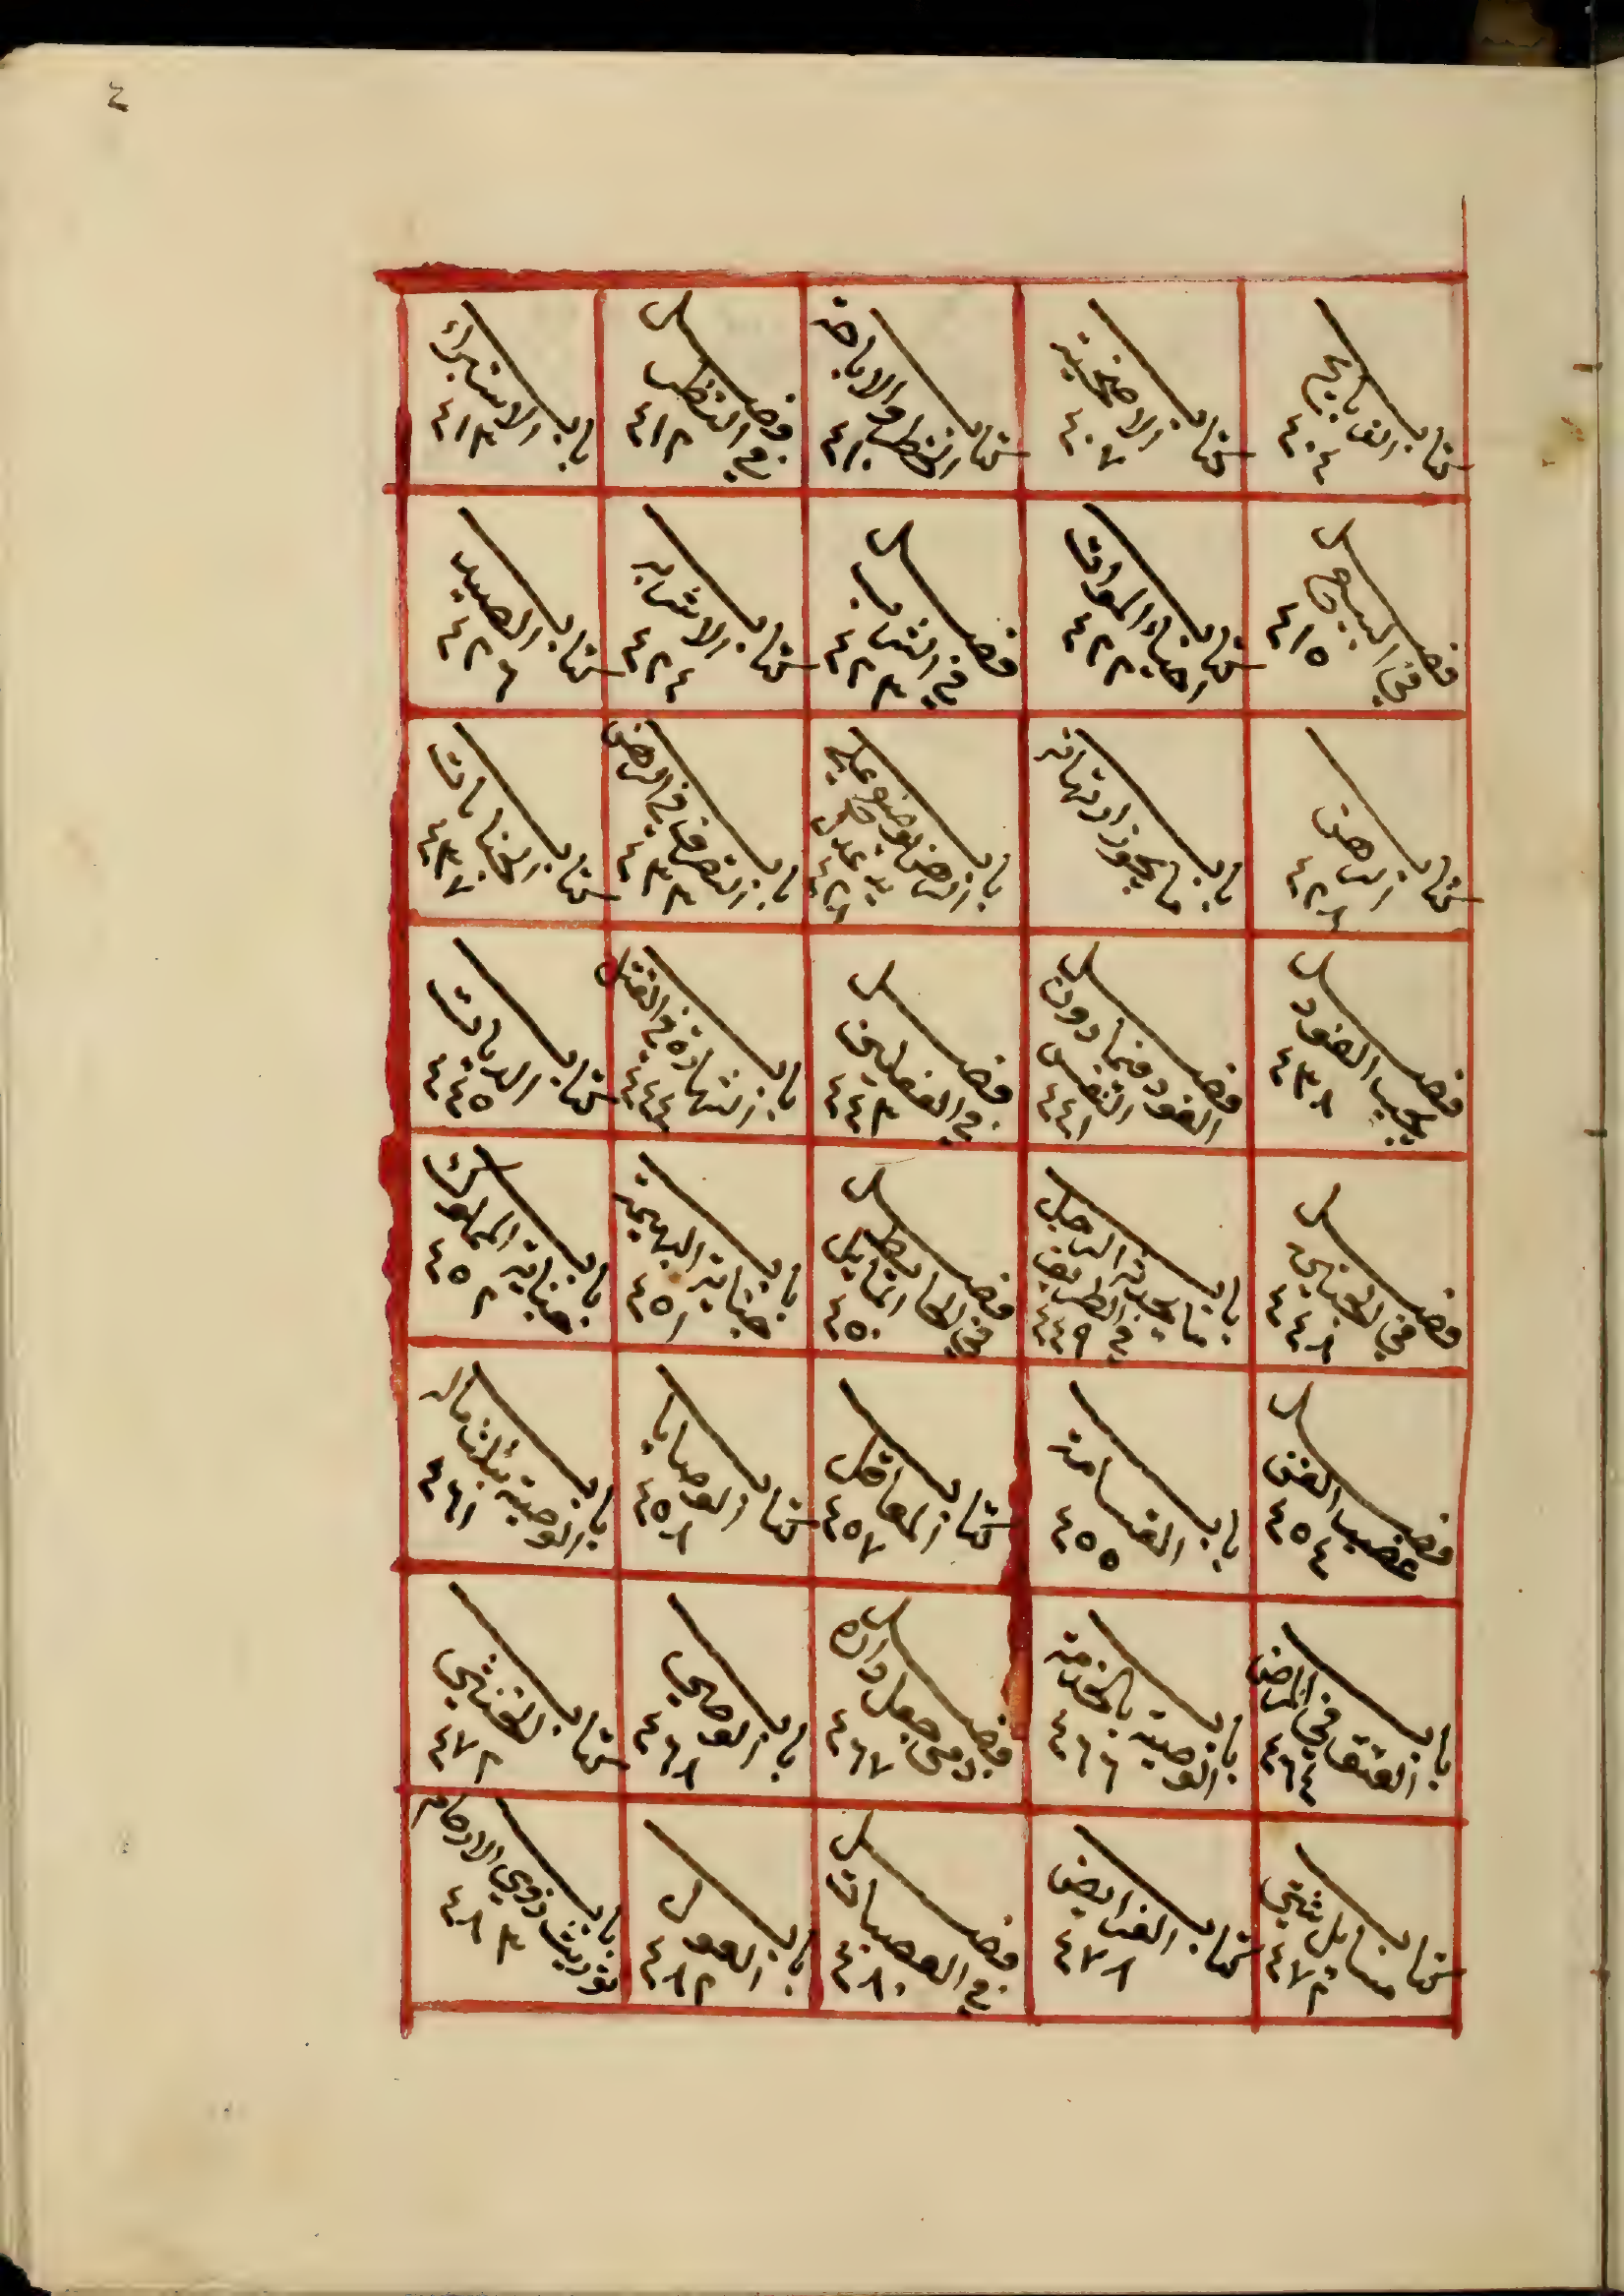 ٤
كتاب الذبايح ٤٠٤
كتاب الاضحية ٤٠٧
كتاب الحظر والاباحة ٤١٠
فصل في النظر ٤١٢
باب الاستبراء ٤١٣
فصل في البيع ٤١٥
كتاب احياء الموات ٤٢٢
فصل في الشرب ٤٢٣
كتاب الاشربه ٤٢٤
كتاب الصيد ٤٢٦
كتاب الرهن ٤٢٨
باب ما يجوز ارتهانه
باب الرهن يوضع على يد عدل
باب التصرف في الرهن ٤٣٣
كتاب الجنايات ٤٣٧
فصل يجب القود ٤٣٨
فصل القود فيما دون النفس ٤٤١
فصل في الفعلين ٤٤٣
باب الشهادة في القتل ٤٤٤
كتاب الديات ٤٤٥
فصل في الجنين ٤٤٨
باب ما يحدثه الرجل في الطريق ٤٤٩
فصل في الحايط المايل ٤٥٠
باب جناية البهيمة ٤٥١
باب جناية المملوك ٤٥٢
فصل غصب القن ٤٥٤
باب القسامة ٤٥٥
كتاب المعاقل ٤٥٧
كتاب الوصايا ٤٥٨
باب الوصية بثلث ماله ٤٦١
باب العتق في المرض ٤٦٤
باب الوصية بالخدمة ٤٦٦
فصل ذمي جعل داره ٤٦٧
باب الوصي ٤٦٨
كتاب الخنثي ٤٧٢
كتاب مسايل شتي ٤٧٣
كتاب الفرايض ٤٧٨
فصل في العصبات ٤٨٠
باب العول ٤٨٢
باب توريث ذوي الارحام ٤٨٣